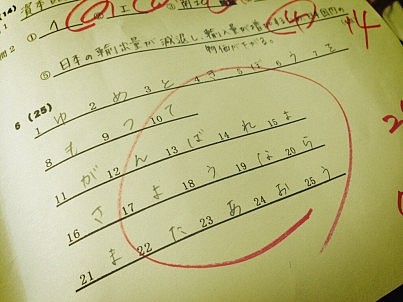 (14)
① A ② I ③
問2
⑤ 日本の輸出量が減退し、輸入量が
物価が下がる。
4
6 (25)
1 ゆ 2 め 3 と 4 き 5 ぼ 6 う 7 を
8 も 9 っ 10 て
11 が 12 ん 13 ば 14 れ 15 よ
16 さ 17 よ 18 う 19 な 20 ら
21 ま 22 た 23 あ 24 お 25 う